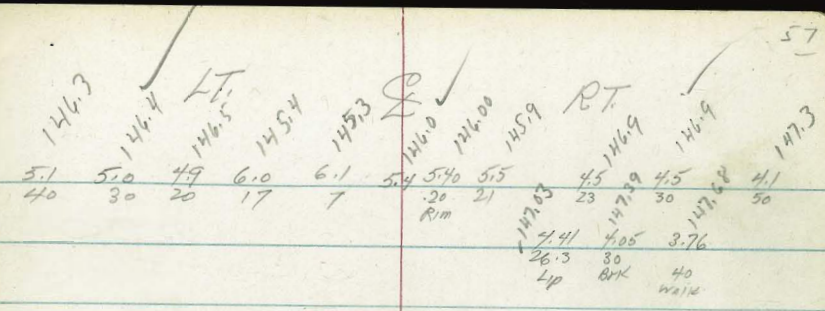 57
LT. ℄ RT.
146.3 146.4 146.5 145.4 145.3 146.0 146.00 145.9 146.9 146.9 147.3
5.1 5.0 4.9 6.0 6.1 5.4 5.40 5.5 4.5 4.5 4.1
40 30 20 17 7 .20 21 23 30 50
Rim
147.03 147.39 147.68
4.41 4.05 3.76
26.3 30 40
Lip BrK Walk